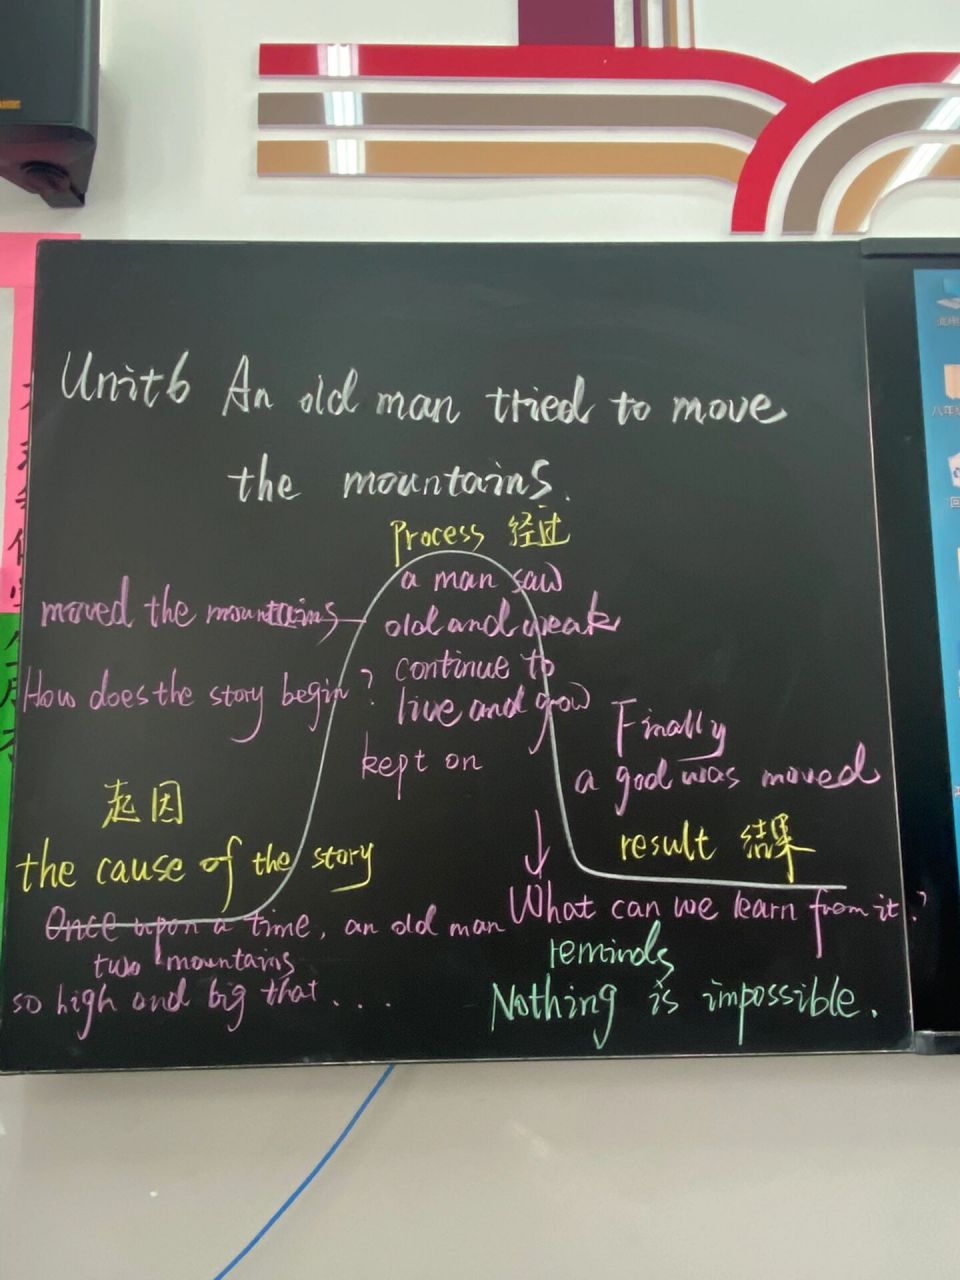 Unit6 An old man tried to move
the mountains.
Process 经过
a man saw
moved the mountains
old and weak
continue to
How does the story begin?
live and grow
kept on
Finally
a god was moved
起因
the cause of the story
result 结果
Once upon a time, an old man
two mountains
so high and big that . . .
What can we learn from it?
reminds
Nothing is impossible.